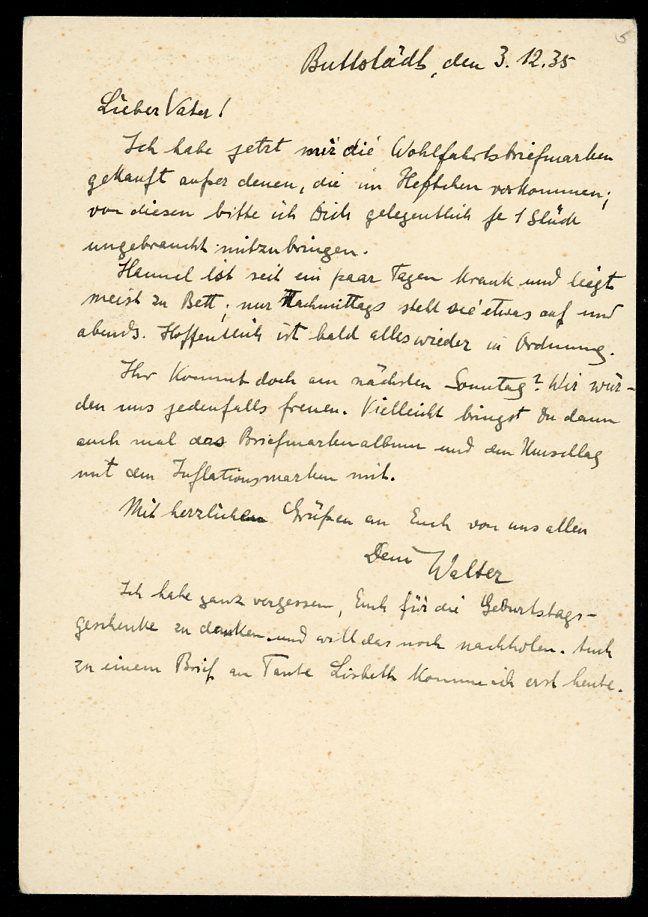 Buttstädt, den 3.12.35
Lieber Vater!
Ich habe jetzt mir die Wohlfahrtsbriefmarken
gekauft außer denen, die im Heftchen vorkommen;
von diesen bitte ich Dich gelegentlich je 1 Stück
ungebraucht mitzubringen.
Hannel ist seit ein paar Tagen krank und liegt
meist zu Bett, nur Nachmittags steht sie etwas auf und
abends. Hoffentlich ist bald alles wieder in Ordnung.
Ihr kommt doch am nächsten Sonntag? Wir wür-
den uns jedenfalls freuen. Vielleicht bringst Du dann
auch mal das Briefmarkenalbum und den Umschlag
mit den Inflationsmarken mit.
Mit herzlichen Grüßen an Euch von uns allen
Dein Walter
Ich habe ganz vergessen, Euch für die Geburtstags-
geschenke zu danken und will das noch nachholen. Auch
zu einem Brief an Tante Lisbeth komme ich erst heute.